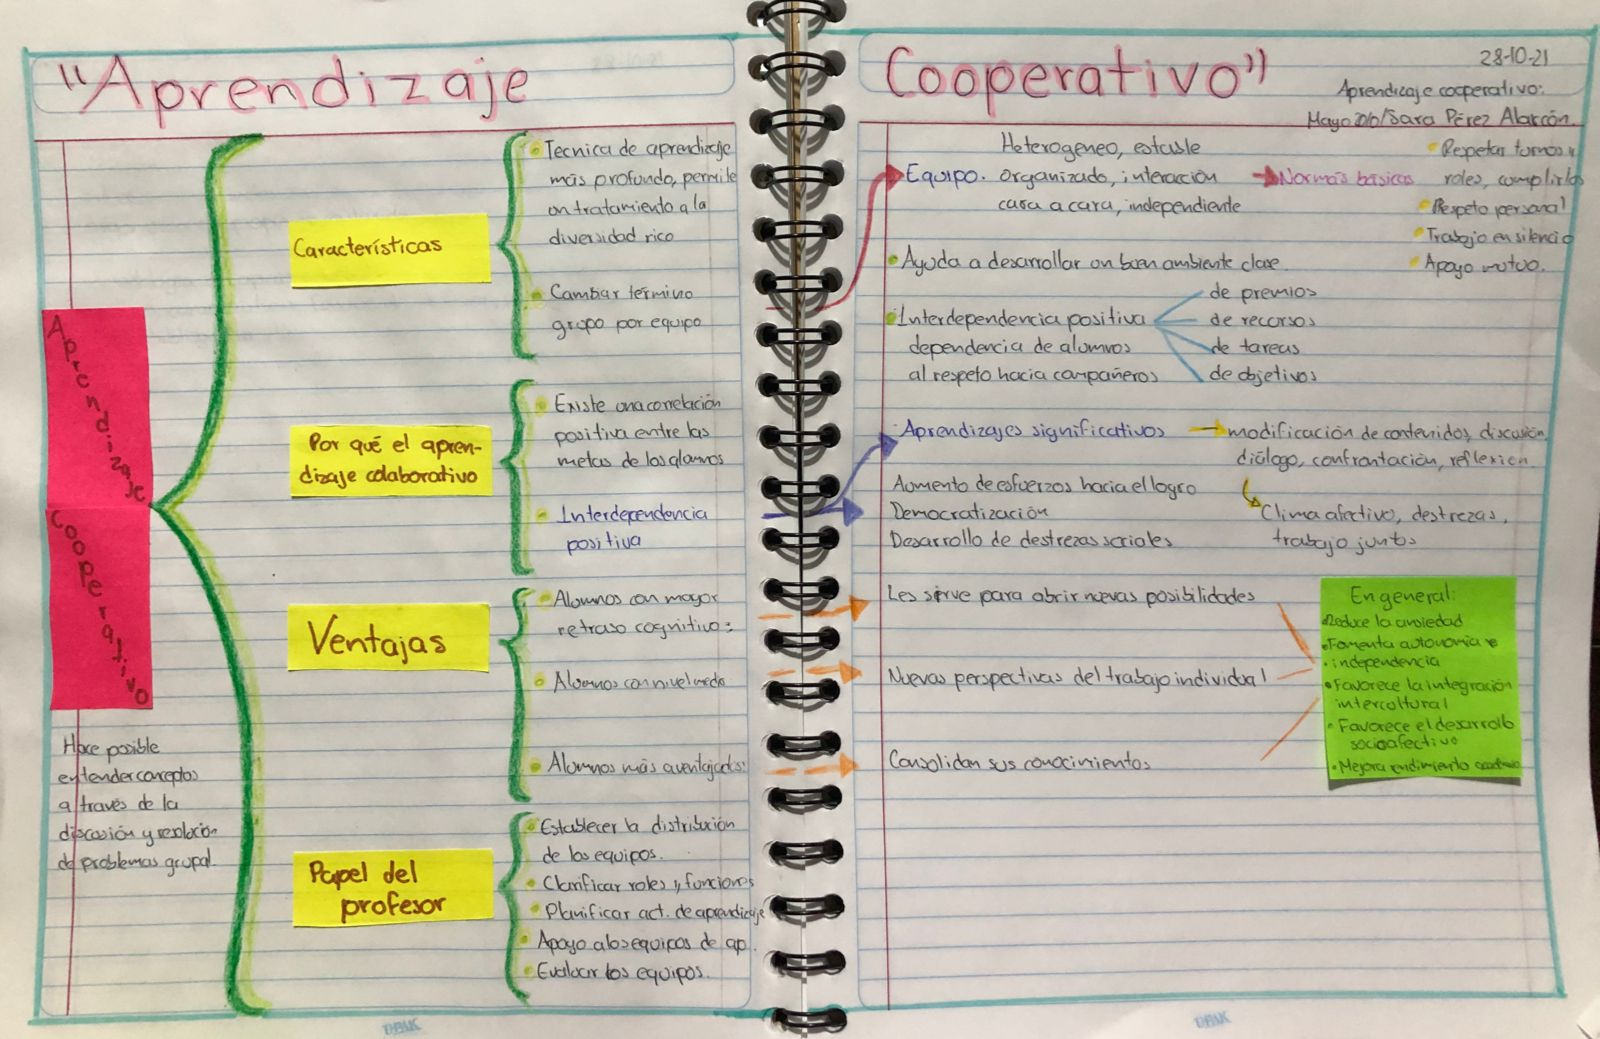 "Aprendizaje Cooperativo"
28-10-21
Aprendizaje cooperativo:
Mayo 2010/Sara Pérez Alarcón.
Aprendizaje
cooperativo
Hace posible
entender conceptos
a través de la
discusión y resolución
de problemas grupal.
Características
Tecnica de aprendizaje
más profundo, permite
un tratamiento a la
diversidad rico
Cambiar término
grupo por equipo
Por qué el apren-
dizaje colaborativo
Existe una correlación
positiva entre las
metas de los alumnos
Interdependencia
positiva
Ventajas
Alumnos con mayor
retraso cognitivo:
Alumnos con nivel medio
Alumnos más aventajados:
Papel del
profesor
Establecer la distribución
de los equipos.
Clarificar roles y funciones
Planificar act. de aprendizaje
Apoyo a los equipos de ap.
Evaluar los equipos.
Heterogeneo, estable
Equipo. organizado, interacción
cara a cara, independiente
Normas básicas
Respetar turnos y
roles, cumplirlos
Respeto personal
Trabajo en silencio
Apoyo mutuo.
Ayuda a desarrollar un buen ambiente clase.
Interdependencia positiva
dependencia de alumnos
al respeto hacia compañeros
de premios
de recursos
de tareas
de objetivos
Aprendizajes significativos
modificación de contenidos, discusión,
diálogo, confrontación, reflexión.
Clima afectivo, destrezas,
trabajo juntos
Aumento de esfuerzos hacia el logro
Democratización
Desarrollo de destrezas sociales
Les sirve para abrir nuevas posibilidades
Nuevas perspectivas del trabajo individual
Consolidan sus conocimientos
En general:
Reduce la ansiedad
Fomenta autonomía e
independencia
Favorece la integración
intercultural
Favorece el desarrollo
socioafectivo
Mejora rendimiento